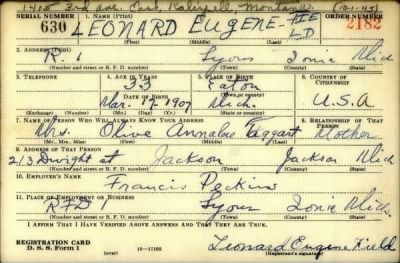 1410 3rd Ave. East, Kalispell, Montana (10-1-45)
SERIAL NUMBER 1. NAME (Print) ORDER NUMBER
630 LEONARD EUGENE FIELD 2182
(First) (Middle) (Last)
2. ADDRESS (Print)
R. 1 Lyons Ionia Mich
(Number and street or R. F. D. number) (Town) (County) (State)
3. TELEPHONE 4. AGE IN YEARS 5. PLACE OF BIRTH 6. COUNTRY OF CITIZENSHIP
33 Eaton
DATE OF BIRTH (Town or county)
Mar. 17 1907 Mich. U.S.A
(Exchange) (Number) (Mo.) (Day) (Yr.) (State or country)
7. NAME OF PERSON WHO WILL ALWAYS KNOW YOUR ADDRESS 8. RELATIONSHIP OF THAT PERSON
Mrs. Olive Annalee Taggart Mother
(Mr., Mrs., Miss) (First) (Middle) (Last)
9. ADDRESS OF THAT PERSON
213 Dwight st Jackson Jackson Mich
(Number and street or R. F. D. number) (Town) (County) (State)
10. EMPLOYER'S NAME
Francis Peckins
11. PLACE OF EMPLOYMENT OR BUSINESS
RFD 1 Lyons Ionia Mich.
(Number and street or R. F. D. number) (Town) (County) (State)
I AFFIRM THAT I HAVE VERIFIED ABOVE ANSWERS AND THAT THEY ARE TRUE.
REGISTRATION CARD
D. S. S. Form 1 16-17105 Leonard Eugene Field
(over) (Registrant's signature)